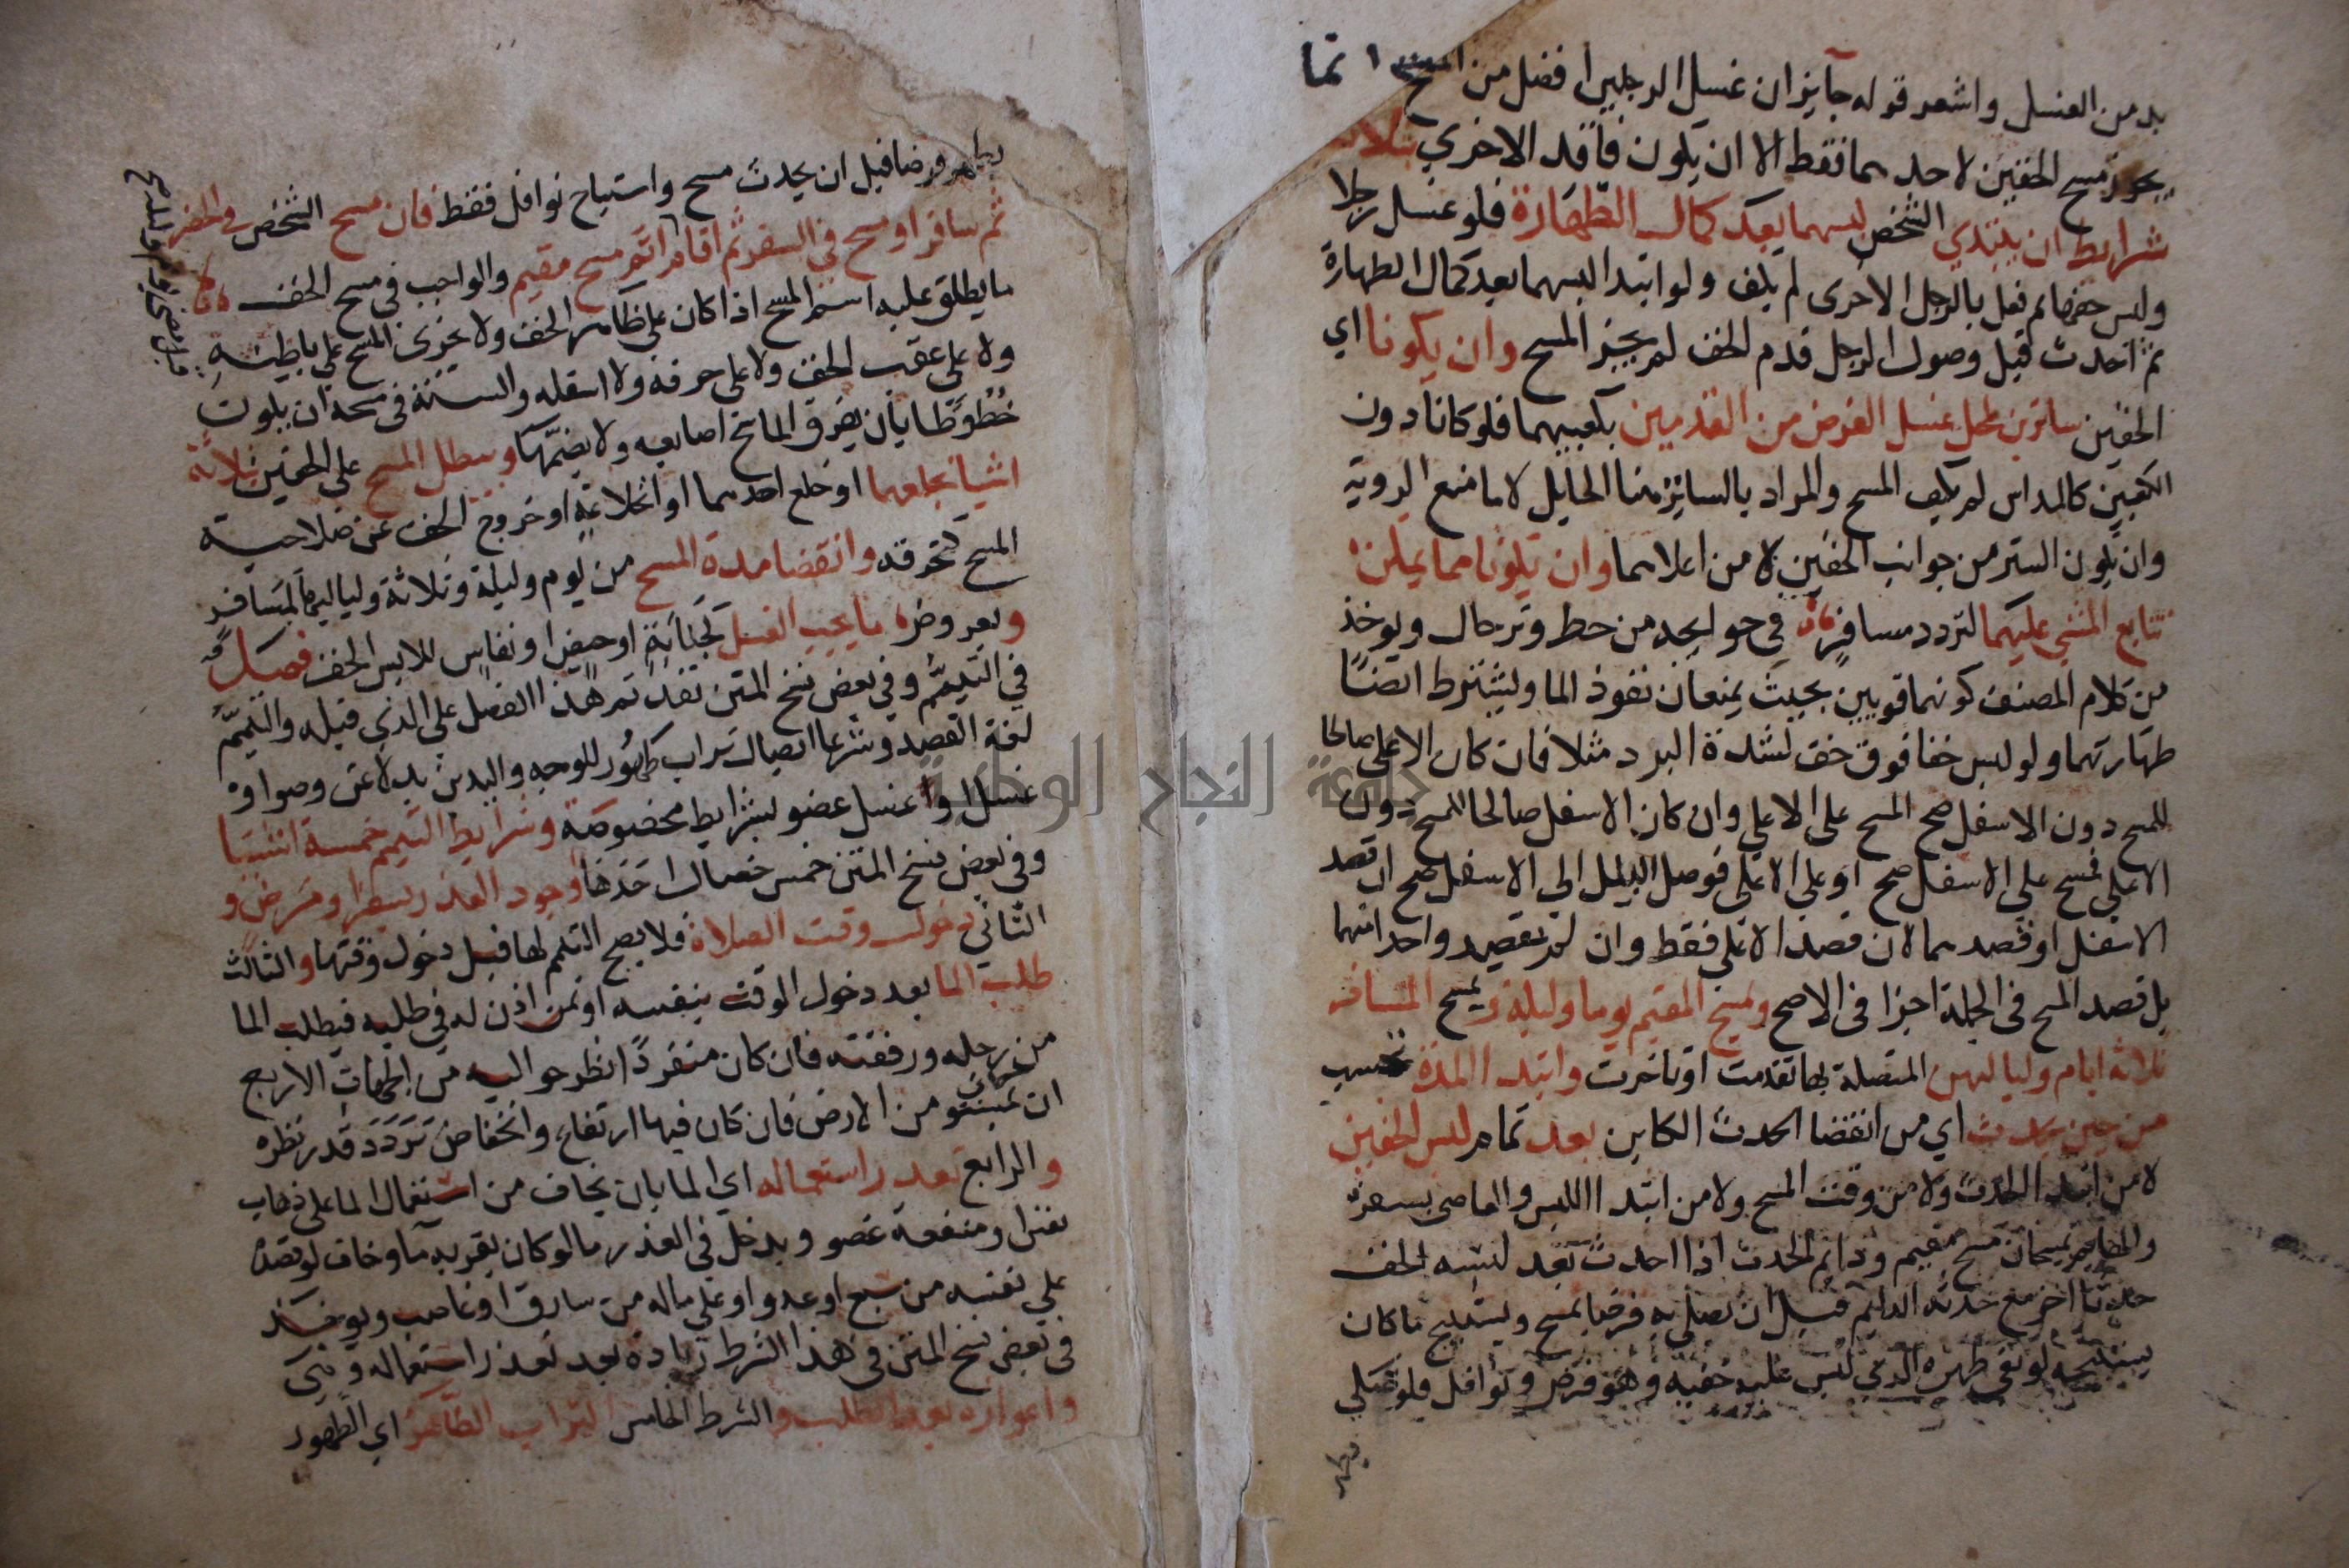 بد من الغسل واشعر قوله جايزان غسل الرجلين افضل من المسح وانما
يجوز مسح الخفين لا حدهما فقط الا ان يكون فاقد الاخري بثلاث
شرايط ان يبتدي الشخص لبسهما بعد كمال الطهارة فلو غسل رجلا
ولبس خفها ثم فعل بالرجل الاخرى لم يكف ولو ابتدا لبسهما بعد كمال الطهارة
ثم احدث قبل وصول الرجل قدم الخف لم يجز المسح وان يكونا اي
الخفين ساترين لمحل غسل الفرض من القدمين بكعبيهما فلو كانا دون
الكعبين كالمداس لم يكف المسح والمراد بالساتر هنا الحايل لا مانع الروية
وان يكون الستر من جوانب الخفين لا من اعلاهما وان يكونا مما يمكن
تتابع المشي عليهما لتردد مسافر في حوايجه من حط وترحال ويوخذ
من كلام المصنف كونهما قويين بحيث يمنعان نفوذ الما ويشترط ايضا
طهارتهما ولو لبس خفا فوق خف لشدة البرد مثلا فان كان الاعلى صالحا
للمسح دون الاسفل صح المسح على الاعلى وان كان الاسفل صالحا للمسح دون
الاعلى فمسح على الاسفل صح او على الاعلى فوصل البلل الى الاسفل صح ان قصد
الاسفل او قصدهما لا ان قصد الاعلى فقط وان لم يقصد واحدا منهما
بل قصد المسح في الجملة اجزا في الاصح ويمسح المقيم يوما وليلة ويمسح المسافر
ثلاثة ايام ولياليهن المتصلة بها تقدمت او تاخرت وابتدا المدة تحسب
من حين يحدث اي من انقضا الحدث الكاين بعد تمام لبس الخفين
لا من ابتدا الحدث ولا من وقت المسح ولا من ابتدا اللبس والعاصي بسفره
والهايم يمسحان مسح مقيم ودايم الحدث اذا احدث بعد لبسه الخف
حدثا اخر مع حدثه الدايم قبل ان يصلي به فرضا يمسح ويستبيح ما كان
يستبيحه لو بقي طهره الذي لبس عليه خفيه وهو فرض ونوافل فلو صلى
بطهر
بطهره فرضا قبل ان يحدث مسح واستباح نوافل فقط فان مسح الشخص في الحضر
ثم سافر او مسح في السفر ثم اقام اتم مسح مقيم والواجب في مسح الخف
ما يطلق عليه اسم المسح اذا كان على ظاهر الخف ولا يجزى المسح على باطنه
ولا على عقب الخف ولا على حرفه ولا اسفله والسنة في مسحه ان يكون
خطوطا بان يفرق الماسح اصابعه ولا يضمها ويبطل المسح على الخفين بثلاثة
اشيا بخلعهما او خلع احدهما او انخلاعه او خروج الخف عن صلاحية
المسح كتخرقه وانقضا مدة المسح من يوم وليلة وثلاثة ولياليها لمسافر
وبعروض ما يجب الغسل كجنابة او حيض او نفاس للابس الخف فصل
في التيمم وفي بعض نسخ المتن تقديم هذا الفصل على الذي قبله والتيمم
لغة القصد وشرعا ايصال تراب طهور للوجه واليدين بدلا عن وضو او
غسل او غسل عضو بشرايط مخصوصة وشرايط التيمم خمسة اشيا
وفي بعض نسخ المتن خمس خصال احدها وجود العذر بسفر او مرض و
الثاني دخول وقت الصلاة فلا يصح التيمم لها قبل دخول وقتها والثالث
طلب الما بعد دخول الوقت بنفسه او بمن اذن له في طلبه فيطلب الما
من رحله ورفقته فان كان منفردا نظر حواليه من الجهات الاربع
ان كان بمستو من الارض فان كان فيها ارتفاع وانخفاض تردد قدر نظره
والرابع تعذر استعماله اي الما بان يخاف من استعمال الما على ذهاب
نفس او منفعة عضو ويدخل في العذر ما لو كان بقربه ما وخاف لو قصده
على نفسه من سبع او عدو او على ماله من سارق او غاصب ويوجد
في بعض نسخ المتن في هذا الشرط زيادة بعد تعذر استعماله وهي
واعوازه بعد الطلب والشرط الخامس التراب الطاهر اي الطهور
جامعة النجاح الوطنية